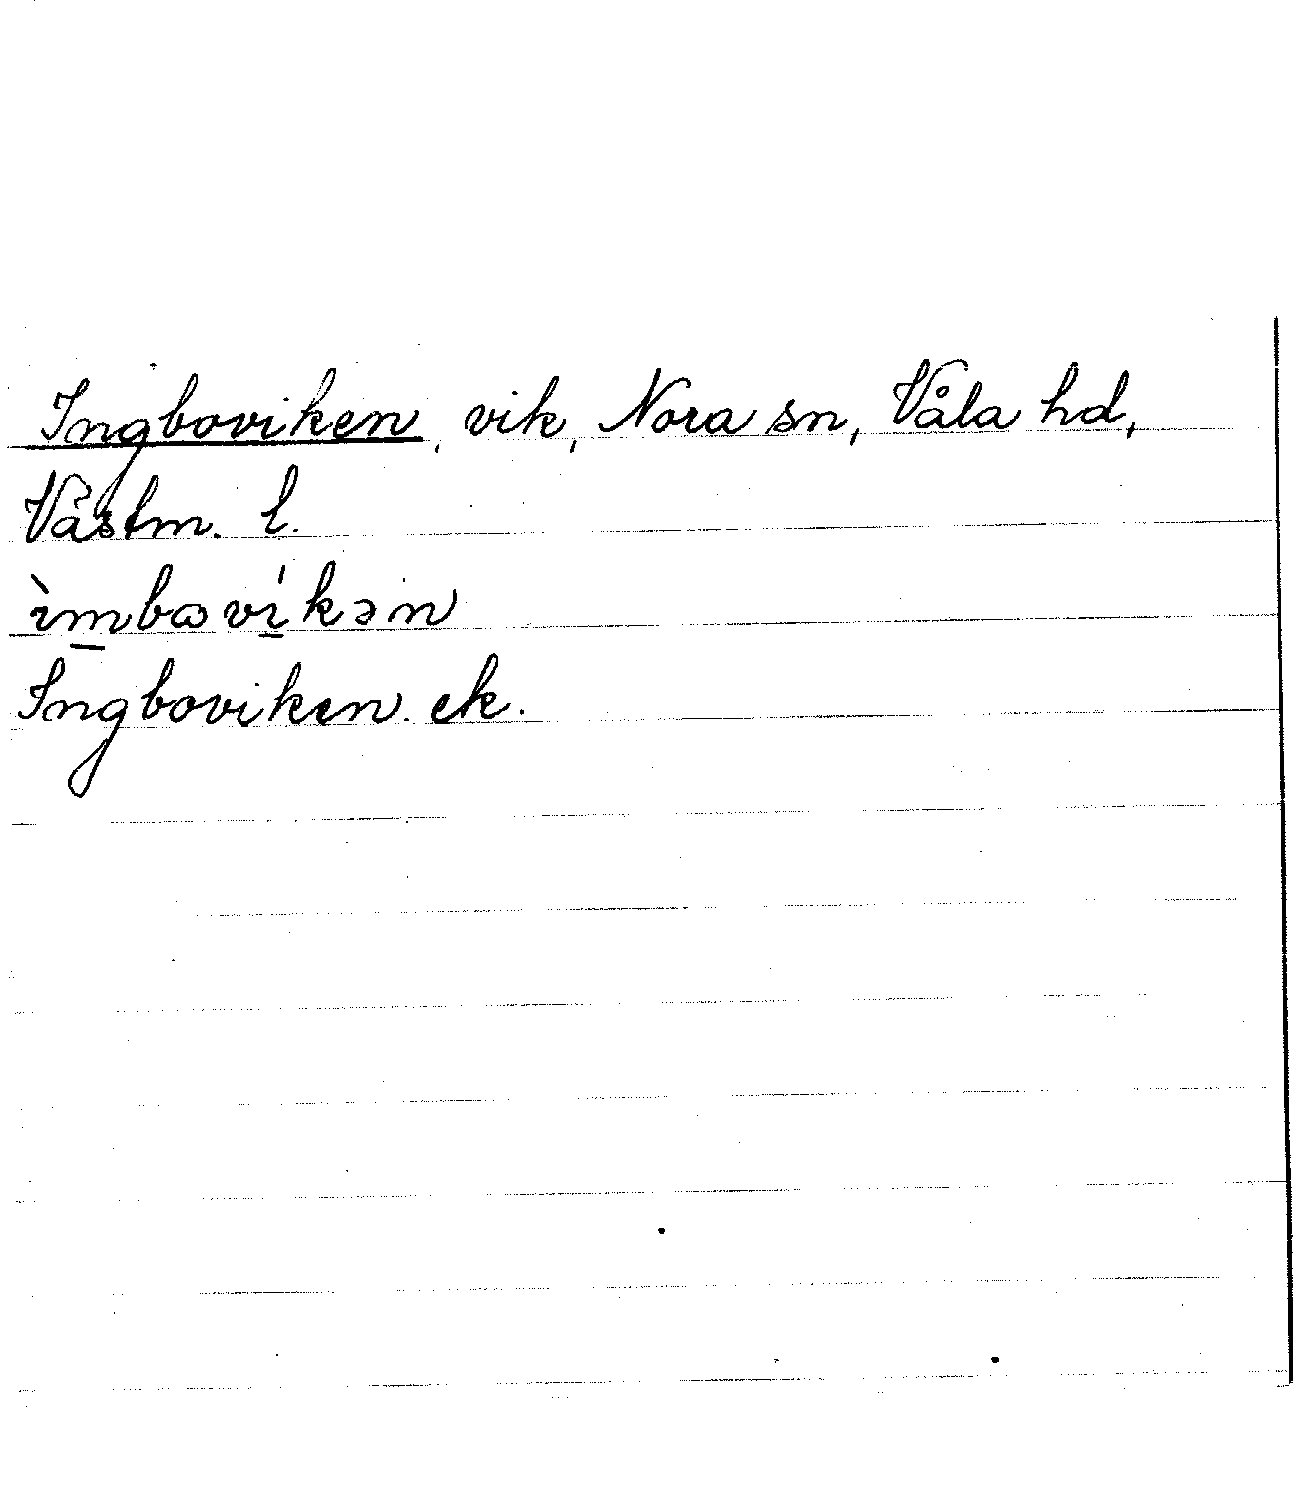 Ingboviken, vik, Nora sn, Våla hd,
Västm. l.
ìm̲bωví̲kən
Ingboviken. ek.